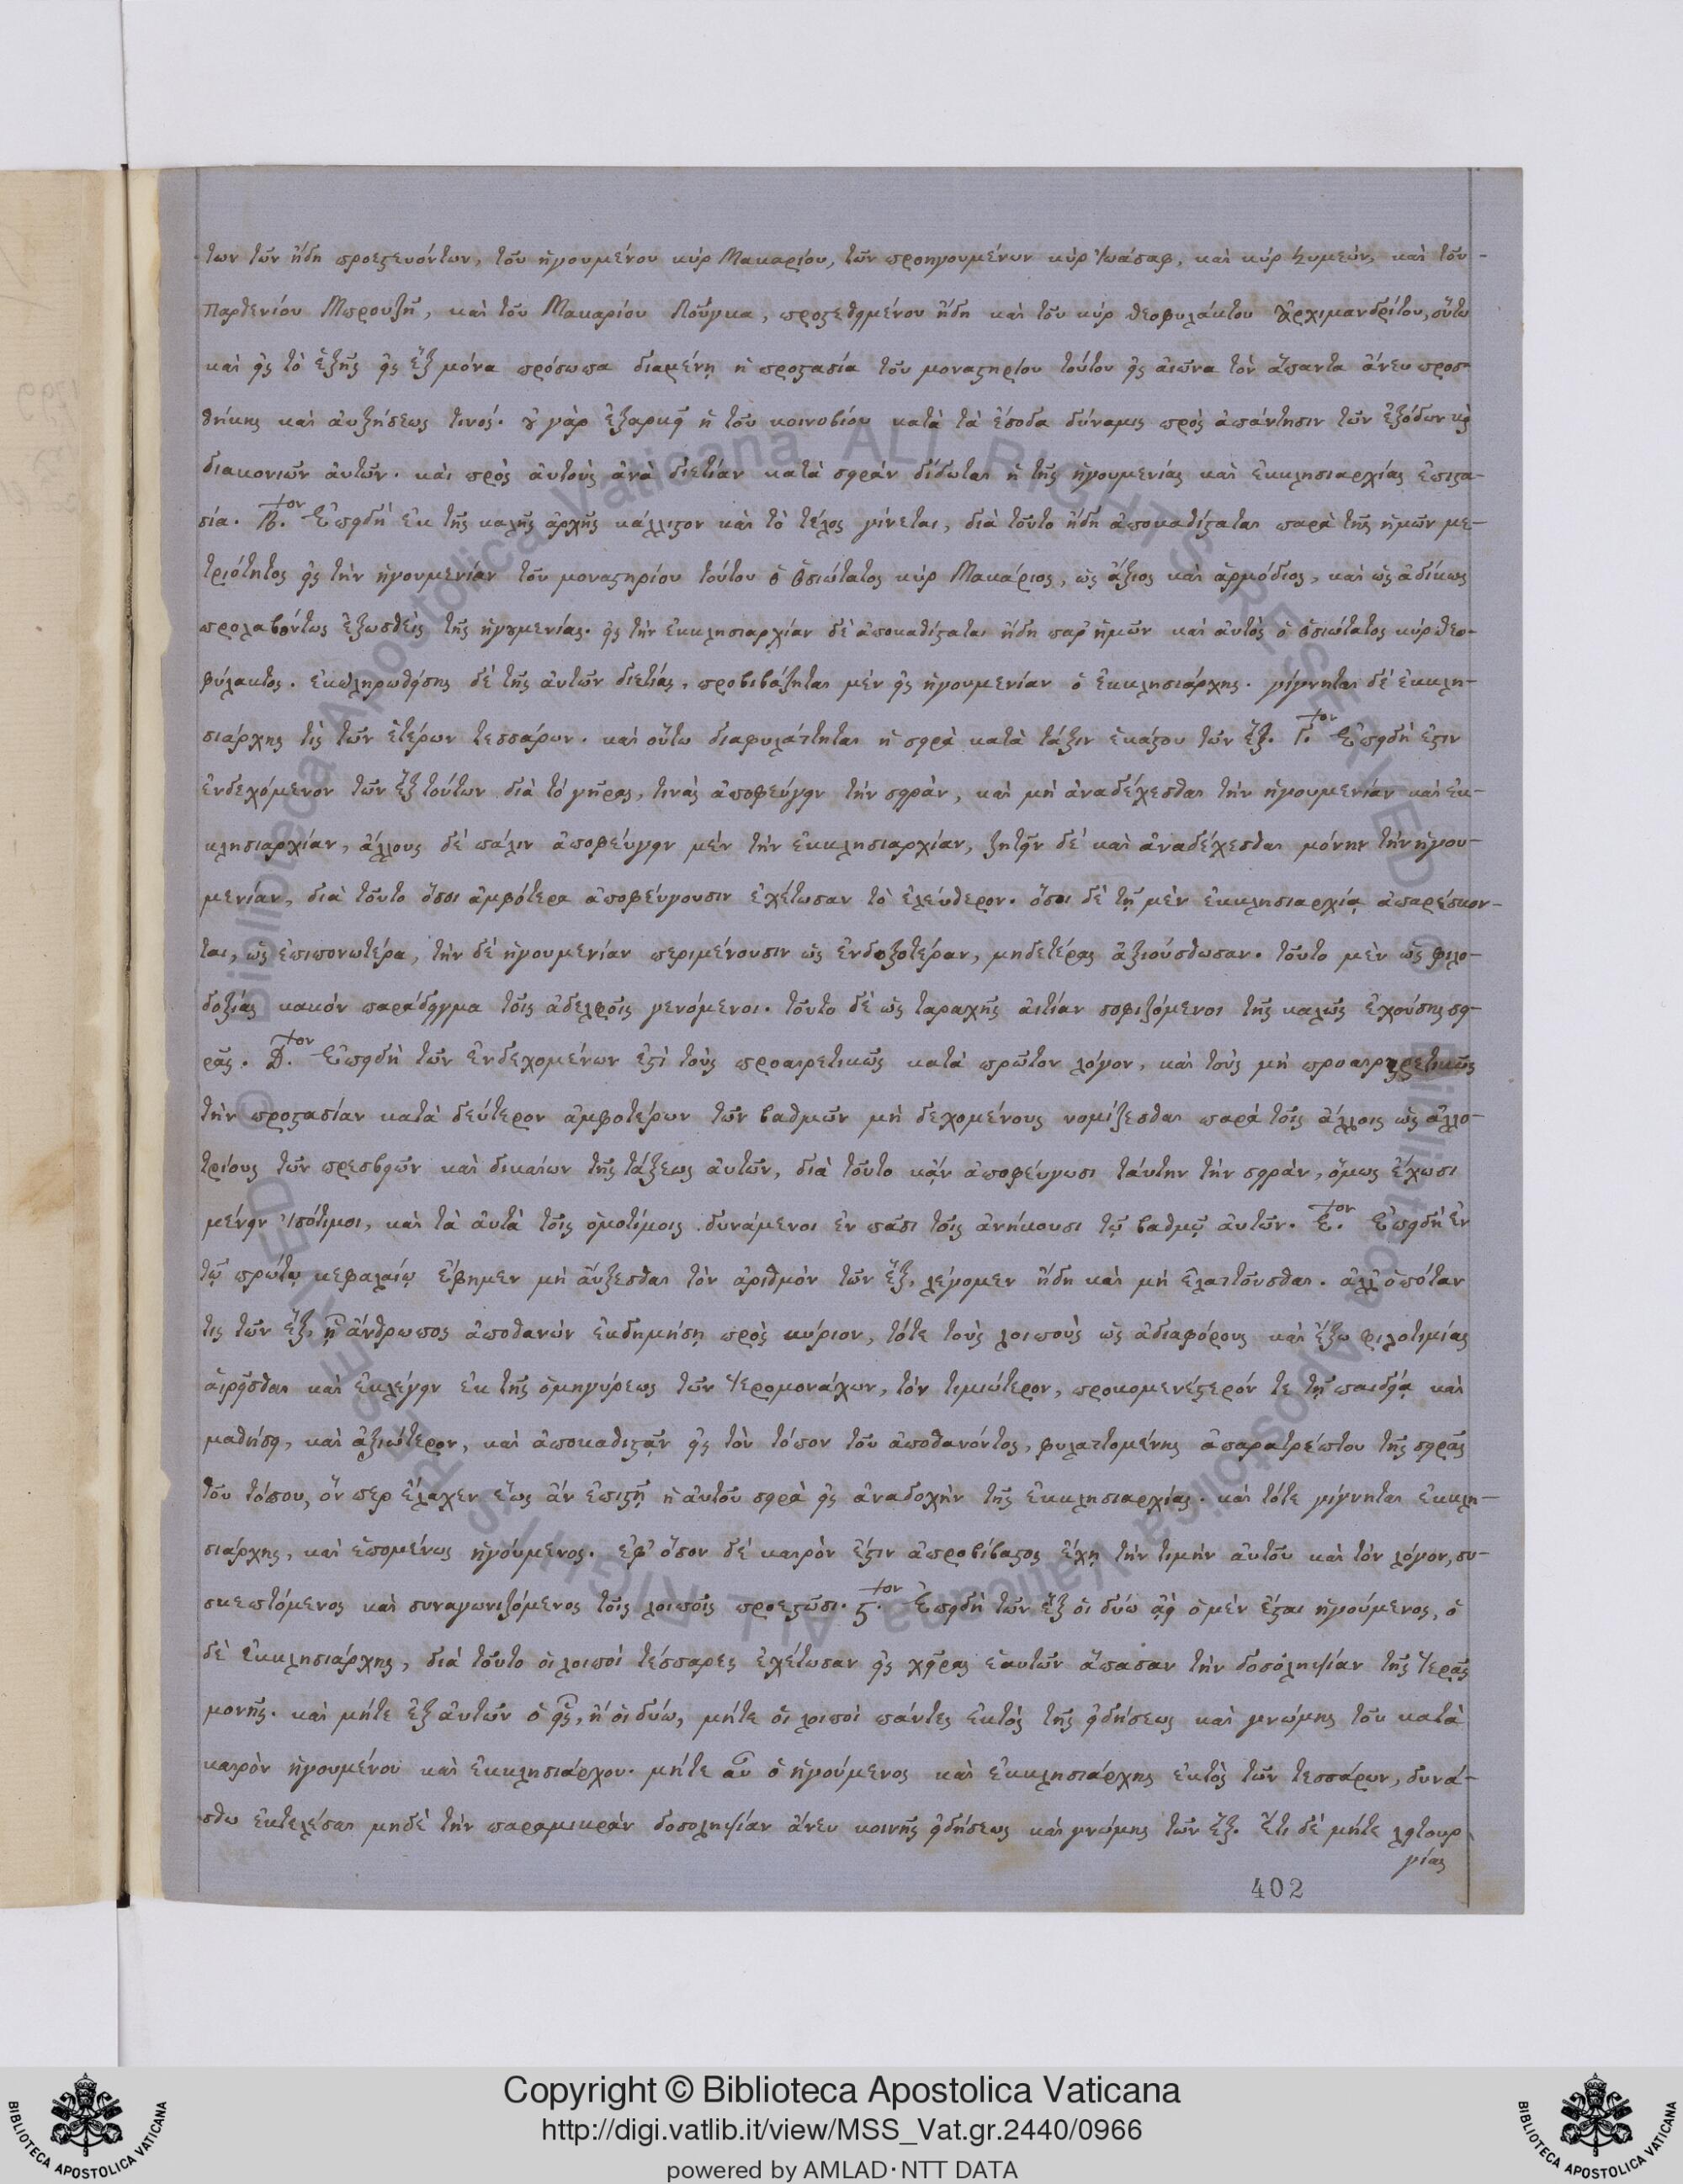 των τῶν ἤδη προεστευόντων, τοῦ ἡγουμένου κύρ Μακαρίου, τῶν προηγουμένων κύρ Ἰωάσαφ, καὶ κύρ Συμεών, καὶ τοῦ
Παρθενίου Μπρουζῆ, καὶ τοῦ Μακαρίου Λούγκα, προστεθειμένου ἤδη καὶ τοῦ κύρ Θεοφυλάκτου Ἀρχιμανδρίτου, οὕτω
καὶ εἰς τὸ ἑξῆς εἰς ἓξ μόνα πρόσωπα διαμένῃ ἡ προστασία τοῦ μοναστηρίου τούτου εἰς αἰῶνα τὸν ἅπαντα ἄνευ προσ-
θήκης καὶ αὐξήσεως τινός. οὐ γὰρ ἐξαρκεῖ ἡ τοῦ κοινοβίου κατὰ τὰ ἔσοδα δύναμις πρὸς ἀπάντησιν τῶν ἐξόδων καὶ
διακονιῶν αὐτῶν. καὶ πρὸς αὐτοὺς ἀνὰ διετίαν κατὰ σειρὰν δίδωται ἡ τῆς ἡγουμενίας καὶ ἐκκλησιαρχίας ἐπιστα-
σία. Β.ον Ἐπειδὴ ἐκ τῆς καλῆς ἀρχῆς κάλλιστον καὶ τὸ τέλος γίνεται, διὰ τοῦτο ἤδη ἀποκαθίσταται παρὰ τῆς ἡμῶν με-
τριότητος εἰς τὴν ἡγουμενίαν τοῦ μοναστηρίου τούτου ὁ ὁσιώτατος κύρ Μακάριος, ὡς ἄξιος καὶ ἁρμόδιος, καὶ ὡς ἀδίκως
προλαβόντως ἐξωσθεὶς τῆς ἡγουμενίας. εἰς τὴν ἐκκλησιαρχίαν δὲ ἀποκαθίσταται ἤδη παρ' ἡμῶν καὶ αὐτὸς ὁ ὁσιώτατος κύρ Θεο-
φύλακτος. ἐκπληρωθείσης δὲ τῆς αὐτῶν διετίας, προβιβάζηται μὲν εἰς ἡγουμενίαν ὁ ἐκκλησιάρχης. γίγνηται δὲ ἐκκλη-
σιάρχης τὶς τῶν ἑτέρων τεσσάρων. καὶ οὕτω διαφυλάττηται ἡ σειρὰ κατὰ τάξιν ἑκάστου τῶν ἕξ. Γ.τον Ἐπειδή ἐστιν
ἐνδεχόμενον τῶν ἓξ τούτων διὰ τὸ γῆρας, τινὰς ἀποφεύγειν τὴν σειρὰν, καὶ μὴ ἀναδέχεσθαι τὴν ἡγουμενίαν καὶ ἐκ-
κλησιαρχίαν, ἄλλους δὲ πάλιν ἀποφεύγειν μὲν τὴν ἐκκλησιαρχίαν, ζητεῖν δὲ καὶ ἀναδέχεσθαι μόνην τὴν ἡγου-
μενίαν, διὰ τοῦτο ὅσοι ἀμφότερα ἀποφεύγουσιν ἐχέτωσαν τὸ ἐλεύθερον. ὅσοι δὲ τῇ μὲν ἐκκλησιαρχίᾳ ἀπαρέσκον-
ται, ὡς ἐπιπονωτέρᾳ, τὴν δὲ ἡγουμενίαν περιμένουσιν ὡς ἐνδοξοτέραν, μηδετέρας ἀξιούσθωσαν. τοῦτο μὲν ὡς φιλο-
δοξίας κακὸν παράδειγμα τοῖς ἀδελφοῖς γενόμενοι. τοῦτο δὲ ὡς ταραχῆς αἰτίαν σοφιζόμενοι τῆς καλῶς ἐχούσης σει-
ρᾶς. Δ.τον Ἐπειδὴ τῶν ἐνδεχομένων ἐστὶ τοὺς προαιρετικῶς κατὰ πρῶτον λόγον, καὶ τοὺς μὴ προαιρετικῶς
τὴν προστασίαν κατὰ δεύτερον ἀμφοτέρων τῶν βαθμῶν μὴ δεχομένους νομίζεσθαι παρὰ τοῖς ἄλλοις ὡς ἀλλο-
τρίους τῶν πρεσβειῶν καὶ δικαίων τῆς τάξεως αὐτῶν, διὰ τοῦτο κᾂν ἀποφεύγωσι ταύτην τὴν σειρὰν, ὅμως ἔχωσι
μένειν ἰσότιμοι, καὶ τὰ αὐτὰ τοῖς ὁμοτίμοις δυνάμενοι ἐν πᾶσι τοῖς ἀνήκουσι τῷ βαθμῷ αὐτῶν. Ε.τον Ἐπειδὴ ἐν
τῷ πρώτῳ κεφαλαίῳ ἔφημεν μὴ αὔξεσθαι τὸν ἀριθμὸν τῶν ἕξ, λέγομεν ἤδη καὶ μὴ ἐλαττοῦσθαι. ἀλλ' ὁπόταν
τις τῶν ἕξ, ᾗ ἄνθρωπος ἀποθανὼν ἐκδημήσῃ πρὸς κύριον, τότε τοὺς λοιποὺς ὡς ἀδιαφόρους καὶ ἔξω φιλοτιμίας
αἱρεῖσθαι καὶ ἐκλέγειν ἐκ τῆς ὁμηγύρεως τῶν ἱερομονάχων, τὸν τιμιώτερον, προκομενέστερόν τε τῇ παιδείᾳ καὶ
μαθήσει, καὶ ἀξιώτερον, καὶ ἀποκαθιστᾷν εἰς τὸν τόπον τοῦ ἀποθανόντος, φυλαττομένης ἀπαρατρέπτου τῆς σειρᾶς
τοῦ τόπου, ὅν περ ἔλαχεν ἕως ἂν ἐπιστῇ ἡ αὐτοῦ σειρὰ εἰς ἀναδοχὴν τῆς ἐκκλησιαρχίας. καὶ τότε γίγνηται ἐκκλη-
σιάρχης, καὶ ἑπομένως ἡγούμενος. ἐφ' ὅσον δὲ καιρὸν ἔστιν ἀπροβίβαστος ἔχῃ τὴν τιμὴν αὐτοῦ καὶ τὸν λόγον, συ-
σκεπτόμενος καὶ συναγωνιζόμενος τοῖς λοιποῖς προεστῶσι. ϛ.τον Ἐπειδὴ τῶν ἓξ οἱ δύω ἀεὶ ὁ μὲν ἔσται ἡγούμενος, ὁ
δὲ ἐκκλησιάρχης, διὰ τοῦτο οἱ λοιποὶ τέσσαρες ἐχέτωσαν εἰς χεῖρας ἑαυτῶν ἅπασαν τὴν δοσοληψίαν τῆς ἱερᾶς
μονῆς. καὶ μήτε ἐξ αὐτῶν ὁ εἷς, ἢ οἱ δύω, μήτε οἱ λοιποὶ πάντες ἐκτὸς τῆς εἰδήσεως καὶ γνώμης τοῦ κατὰ
καιρὸν ἡγουμένου καὶ ἐκκλησιάρχου. μήτε αὖ ὁ ἡγούμενος καὶ ἐκκλησιάρχης ἐκτὸς τῶν τεσσάρων, δυνά-
σθω ἐκτελέσαι μηδὲ τὴν παραμικρὰν δοσοληψίαν ἄνευ κοινῆς εἰδήσεως καὶ γνώμης τῶν ἕξ. Ἔτι δὲ μήτε λειτουρ
γίας
402
Copyright © Biblioteca Apostolica Vaticana
http://digi.vatlib.it/view/MSS_Vat.gr.2440/0966
powered by AMLAD·NTT DATA
BIBLIOTECA APOSTOLICA VATICANA
BIBLIOTECA APOSTOLICA VATICANA